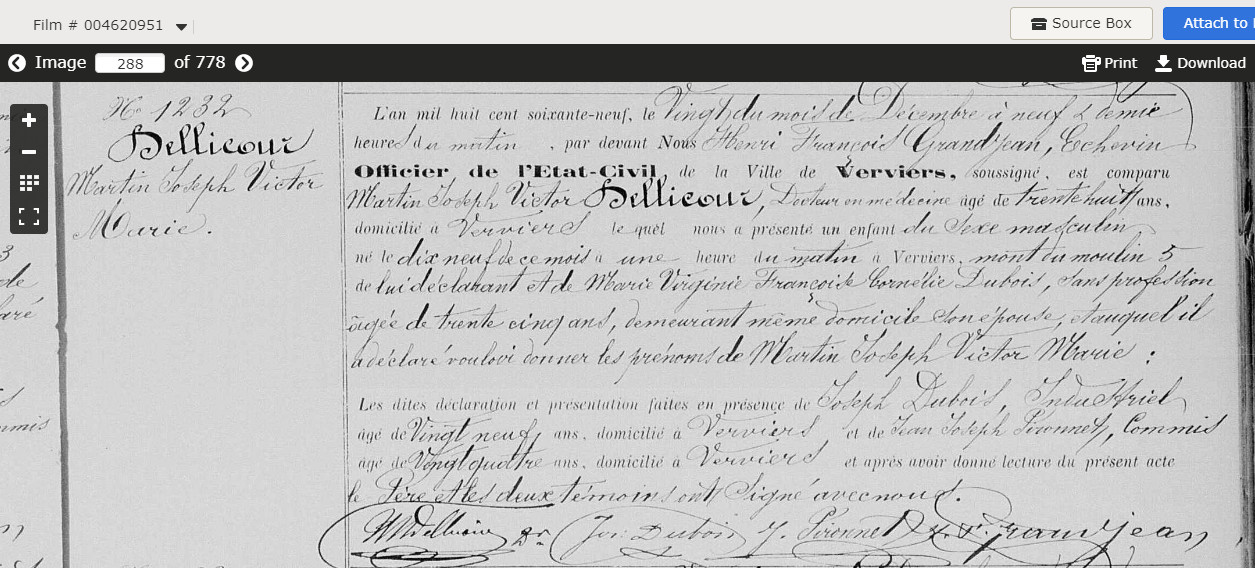 Film # 004620951
Source Box
Attach to
Image 288 of 778
Print
Download
No 1232
Dellicour
Martin Joseph Victor
Marie.
L'an mil huit cent soixante-neuf, le Vingt du mois de Décembre à neuf & demie
heures du matin, par devant Nous Henri François Grandjean, Echevin
Officier de l'Etat-Civil, de la Ville de Verviers, soussigné, est comparu
Martin Joseph Victor Dellicour, Docteur en médecine âgé de trente huit ans,
domicilié à Verviers lequel nous a présenté un enfant du Sexe masculin
né le dix neuf de ce mois à une heure du matin à Verviers, mont du moulin 5
de lui déclarant et de Marie Virginie Françoise Cornélie Dubois, sans profession
âgée de trente cinq ans, demeurant même domicile son épouse, et auquel il
a déclaré vouloir donner les prénoms de Martin Joseph Victor Marie :
Les dites déclaration et présentation faites en présence de Joseph Dubois, Industriel
âgé de Vingt neuf, ans, domicilié à Verviers et de Jean Joseph Pironnet, Commis
âgé de Vingt quatre ans, domicilié à Verviers et après avoir donné lecture du présent acte
le Père et les deux témoins ont Signé avec nous.
Dr Jos. Dubois J. Pironnet Grandjean